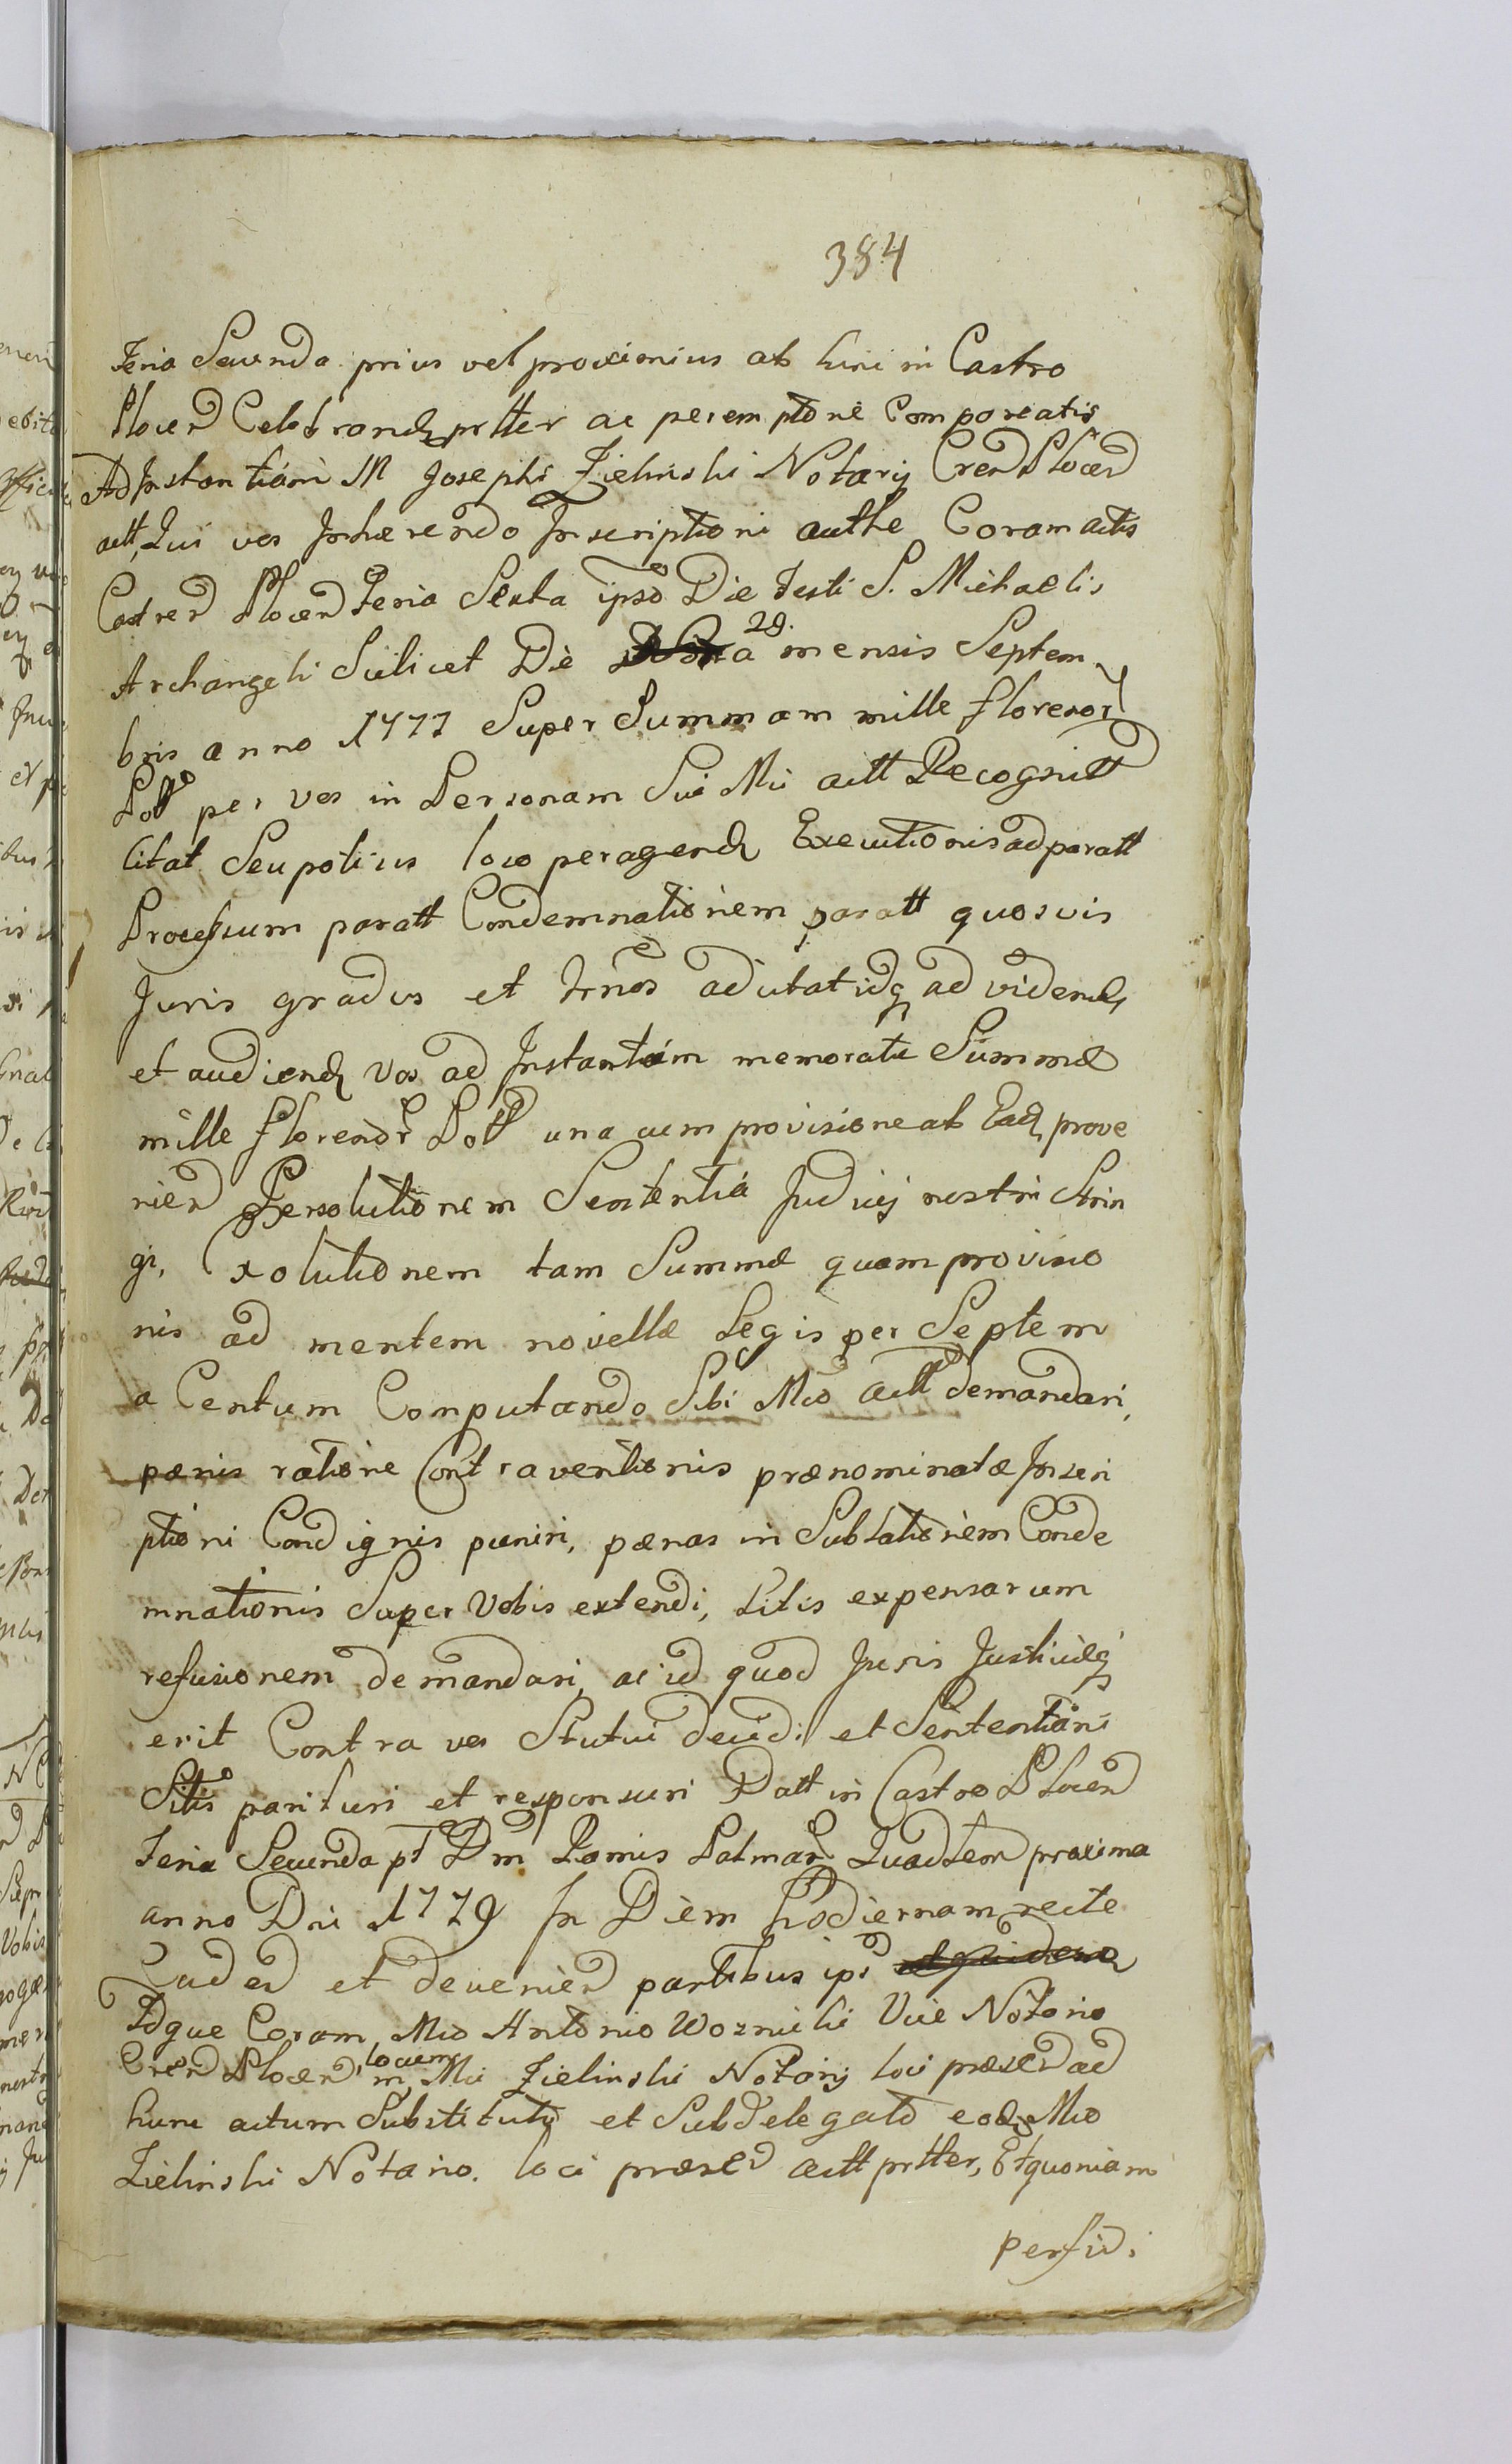 384
Feria Secunda prius vel proximius ab hinc in Castro
Plocen Celebrand prtter ac peremptorie Compareatis
Ad Instantiam M Josephi Zielinski Notarij Cren Plocen
actt, Qui vos Inhærendo Inscriptioni authe Coram actis
Castren Plocen Feria Sexta ipso Die Festi S. Michaelis
Archangeli Scilicet Die 29. a mensis Septem
bris anno 1777 Super Summam mille florenor
Poll per vos in Personam Sui Mci actt Recognitt
Citat Seu potius loco peragend Executionis ad paratt
Processum paratt Condemnationem paratt quosvis
Juris gradus et trnos adcitat idq ad vidend
et audiend vos ad Instantiam memoratæ Summæ
mille florenor Poll una cum provisione ab Ead prove
nien Persolutionem Sententia Judicij nostri Strin
gi, Exolutionem tam Summæ quam provisio
nis ad mentem novellæ Legis per Septem
a Centum Computando Sibi Mco actt demandari,
pænis ratione Contraventionis prænominatæ Inscri
ptioni Condignis puniri, pænas in Sublationem Conde
mnationis Super Vobis extendi, Litis expensarum
refusionem demandari, ac id quod Juris Justitiæq
erit Contra vos Statui decidi et Sententiari
Sitis parituri et responsuri Datt in Castro Plocen
Feria Secunda pt Dm Ramis Palmar Quadtem proxima
anno Dni 1779 In Diem hodiernam recte
Caden et devenien partibus ips
Idque Coram Mco Antonio Woznicki Vice Notario
Cren Plocen in locum Mci Zielinski Notarij loci præsen ad
hunc actum Substituto et Subdelegato eod Mco
Zielinski Notario loci præsen actt prtter, Et quoniam
perfidi